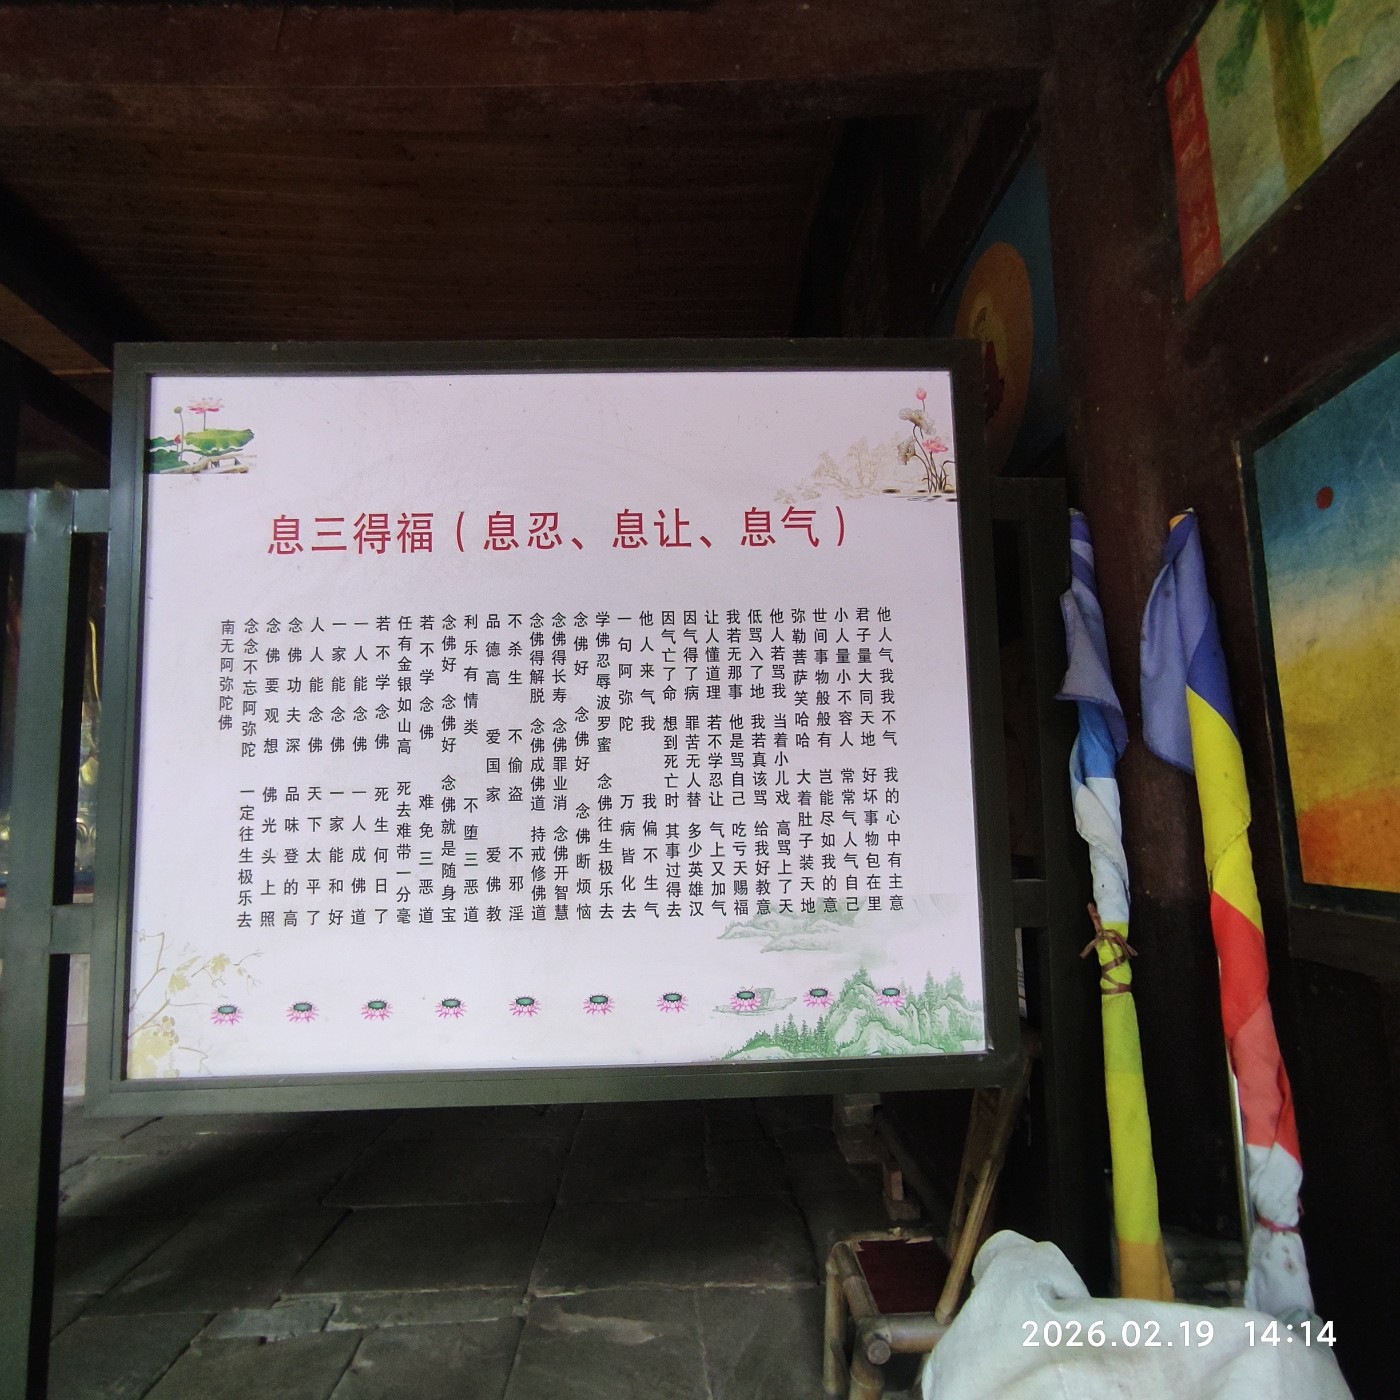 息三得福（息忍、息让、息气）
他人气我我不气 我的心中有主意
君子量大同天地 好坏事物包在里
小人量小不容人 常常气人气自己
世间事物般般有 岂能尽如我的意
弥勒菩萨笑哈哈 大着肚子装天地
他人若骂我 当着小儿戏 高骂上了天
低骂入了地 我若真该骂 给我好教意
我若无那事 他是骂自己 吃亏天赐福
让人懂道理 若不学忍让 气上又加气
因气得了病 罪苦无人替 多少英雄汉
因气亡了命 想到死亡时 其事过得去
他人来气我 我偏不生气
一句阿弥陀 万病皆化去
学佛忍辱波罗蜜 念佛往生极乐去
念佛好 念佛好 念佛断烦恼
念佛得长寿 念佛罪业消 念佛开智慧
念佛得解脱 念佛成佛道 持戒修佛道
不杀生 不偷盗 不邪淫
品德高 爱国家 爱佛教
利乐有情类 不堕三恶道
念佛好 念佛好 念佛就是随身宝
若不学念佛 难免三恶道
任有金银如山高 死去难带一分毫
若不学念佛 死生何日了
一人能念佛 一人成佛道
一家能念佛 一家能和好
人人能念佛 天下太平了
念佛功夫深 品味登的高
念佛要观想 佛光头上照
念念不忘阿弥陀 一定往生极乐去
南无阿弥陀佛
2026.02.19 14:14